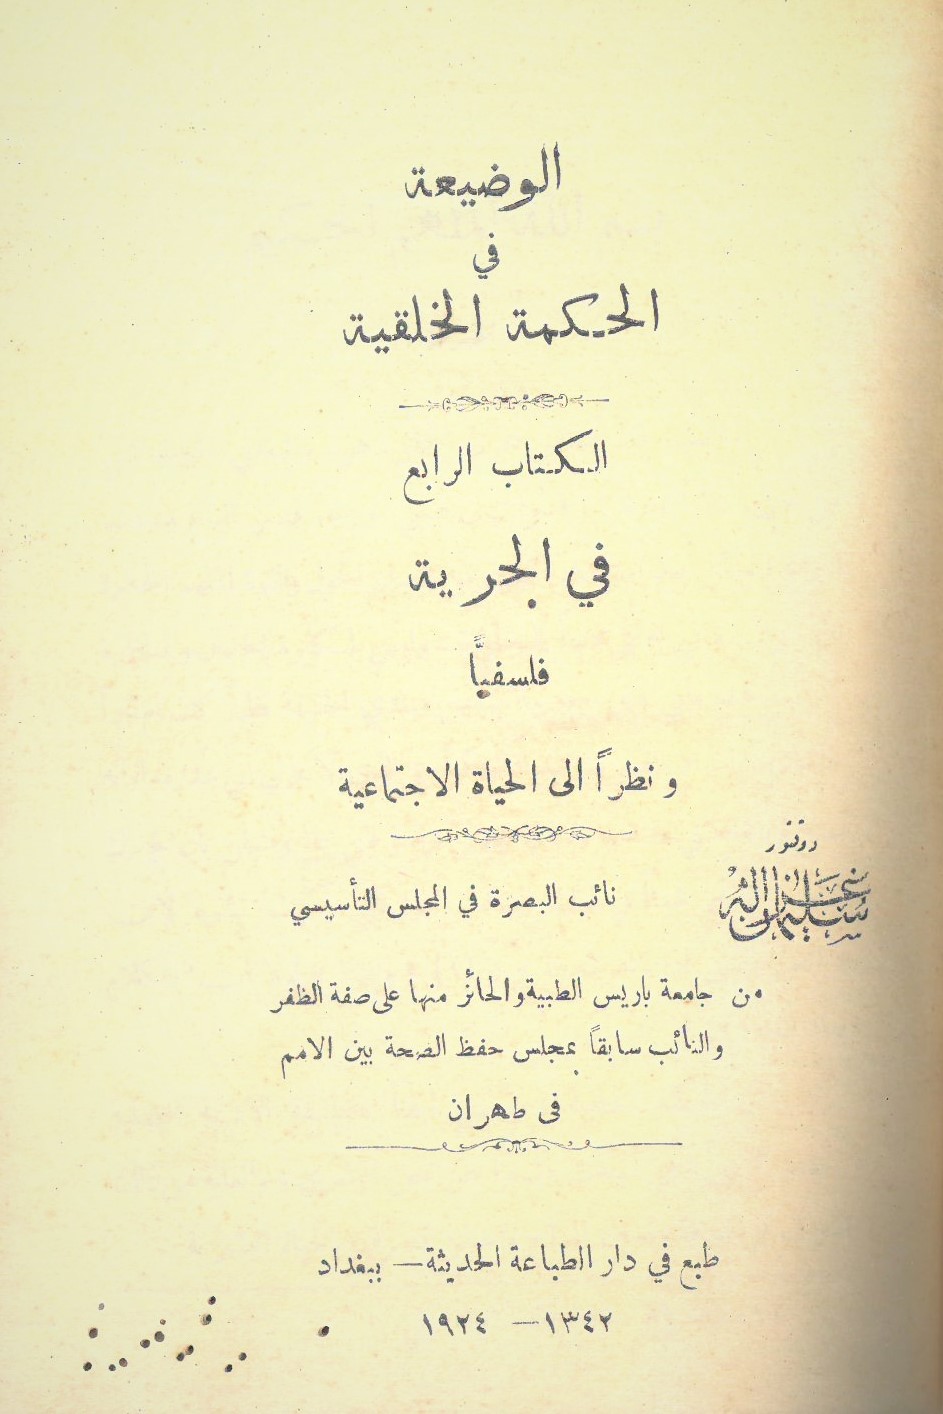 الوضيعة
في
الحكمة الخلقية
الكتاب الرابع
في الحرية
فلسفيًّا
ونظراً الى الحياة الاجتماعية
دوقتور
سليمان غزاله
نائب البصرة في المجلس التأسيسي
من جامعة باريس الطبية والحائز منها على صفة الظفر
والنائب سابقاً بمجلس حفظ الصحة بين الامم
في طهران
طبع في دار الطباعة الحديثة — ببغداد
١٣٤٢ — ١٩٢٤